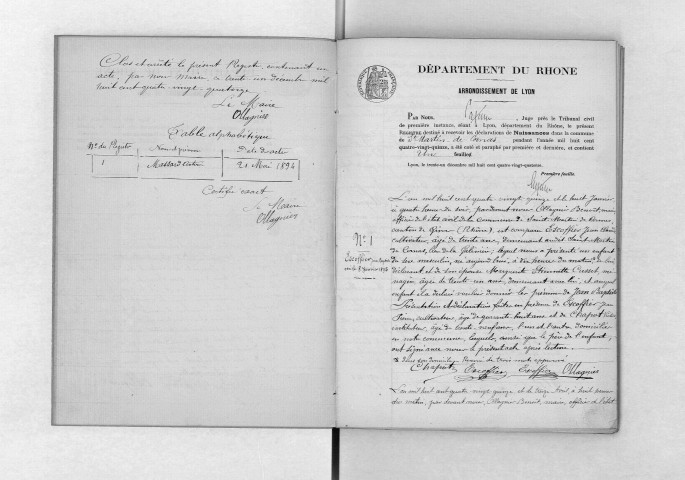 Clos et arrêté le present Registre contenant un
acte, par nous Maire, le trente un décembre mil
huit cent quatre vingt quatorze
Le Maire
Ollagnier
Table alphabétique
Nos du Registre Nom et prénoms Date des actes
1 Massard 21 Mai 1894
Certifié exact
Le Maire
Ollagnier
DÉPARTEMENT DU RHONE
ARRONDISSEMENT DE LYON
PAR NOUS, Juge près le Tribunal civil
de première instance, séant à Lyon, département du Rhône, le présent
REGISTRE destiné à recevoir les déclarations de Naissances dans la commune
de St Martin de Cornas pendant l'année mil huit cent
quatre-vingt-quinze, a été coté et paraphé par première et dernière, et contient
Un feuillet
Lyon, le trente-un décembre mil huit cent quatre-vingt-quatorze.
Première feuille.
L'an mil huit cent quatre vingt quinze et le huit Janvier
à quatre heures du soir, pardevant nous Ollagnier Benoit, maire,
officier de l'état civil de la commune de Saint Martin de Cornas,
canton de Givors (Rhône), est comparu Escoffier Jean
No 1
cultivateur, âgé de trente ans, demeurant audit Saint Martin
de Cornas, lieu de lequel nous a présenté un enfant
Escoffier Jean Baptiste
du sexe masculin, né aujourd'hui, à dix heures du matin, de lui
né le 8 Janvier 1895
déclarant et de son épouse Marguerite ménagère,
âgée de trente un ans, demeurant avec lui, et auquel
enfant il a déclaré vouloir donner les prénoms de Jean Baptiste
Présentation et déclaration faites en présence de Escoffier Jean
cultivateur, âgé de quarante huit ans et de Chapot
cultivateur, âgé de trente neuf ans, l'un et l'autre domiciliés
en notre commune, lesquels, ainsi que le père de l'enfant,
ont signé avec nous le présent acte après lecture.
Chapot Escoffier Escoffier Ollagnier
L'an mil huit cent quatre vingt quinze et le treize Avril, à huit heures
du matin, par devant nous, Ollagnier Benoit, maire, officier de l'état